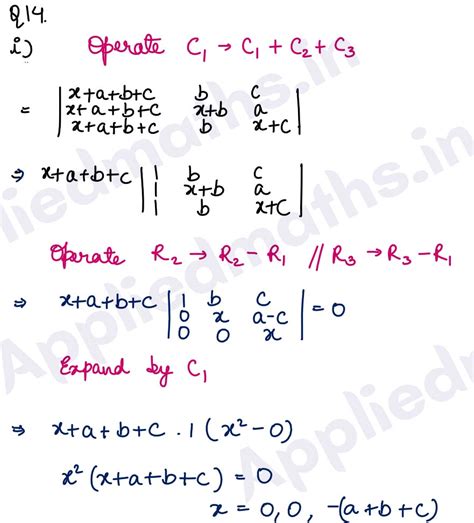 Q14.
i) Operate C₁ → C₁ + C₂ + C₃
= | x+a+b+c b c |
| x+a+b+c x+b a |
| x+a+b+c b x+c |
⇒ x+a+b+c | 1 b c |
| 1 x+b a |
| 1 b x+c |
Operate R₂ → R₂ - R₁ // R₃ → R₃ - R₁
⇒ x+a+b+c | 1 b c |
| 0 x a-c | = 0
| 0 0 x |
Expand by C₁
⇒ x+a+b+c . 1 (x² - 0)
x² (x+a+b+c) = 0
x = 0, 0, -(a+b+c)
Appliedmaths.in
Appliedmaths.in
Appliedm